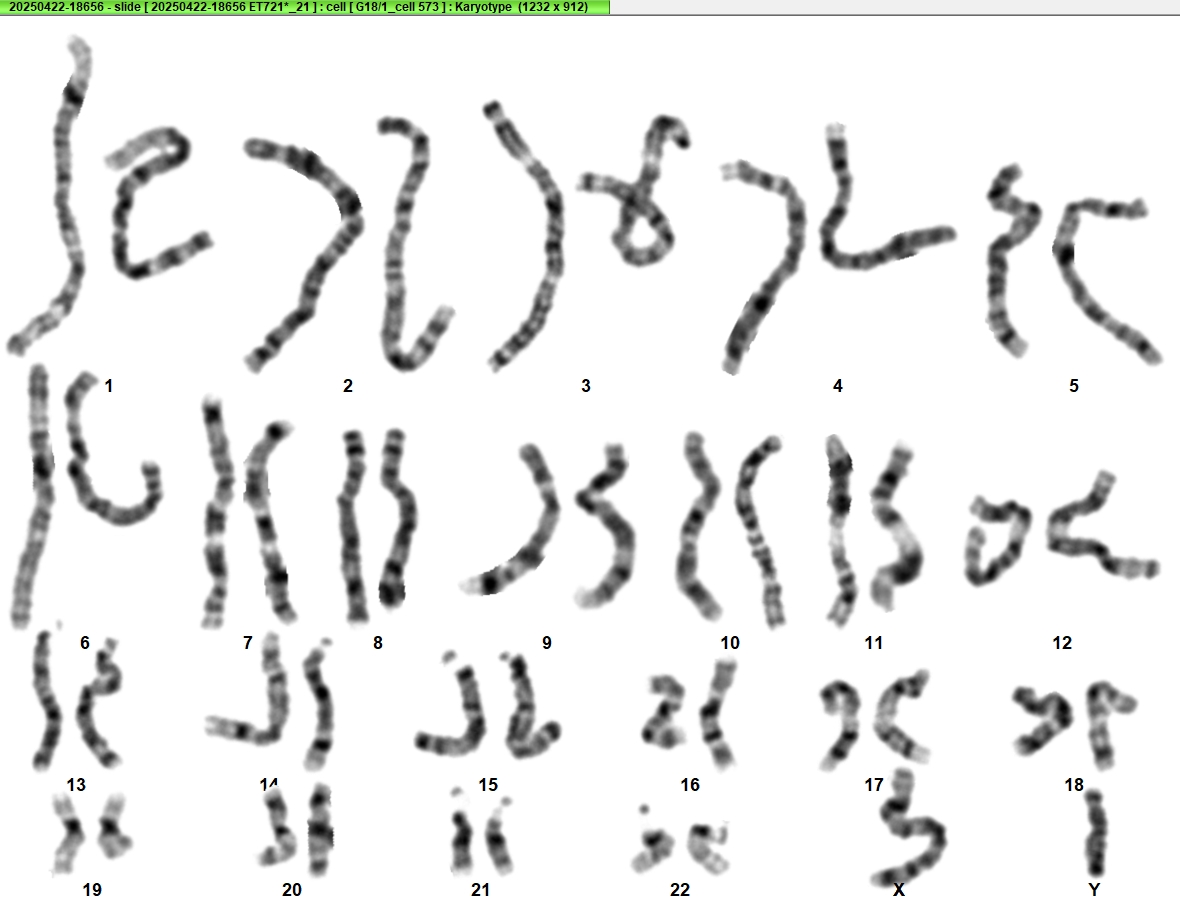 20250422-18656 - slide [ 20250422-18656 ET721*_21 ] : cell [ G18/1_cell 573 ] : Karyotype (1232 x 912)
1 2 3 4 5
6 7 8 9 10 11 12
13 14 15 16 17 18
19 20 21 22 X Y